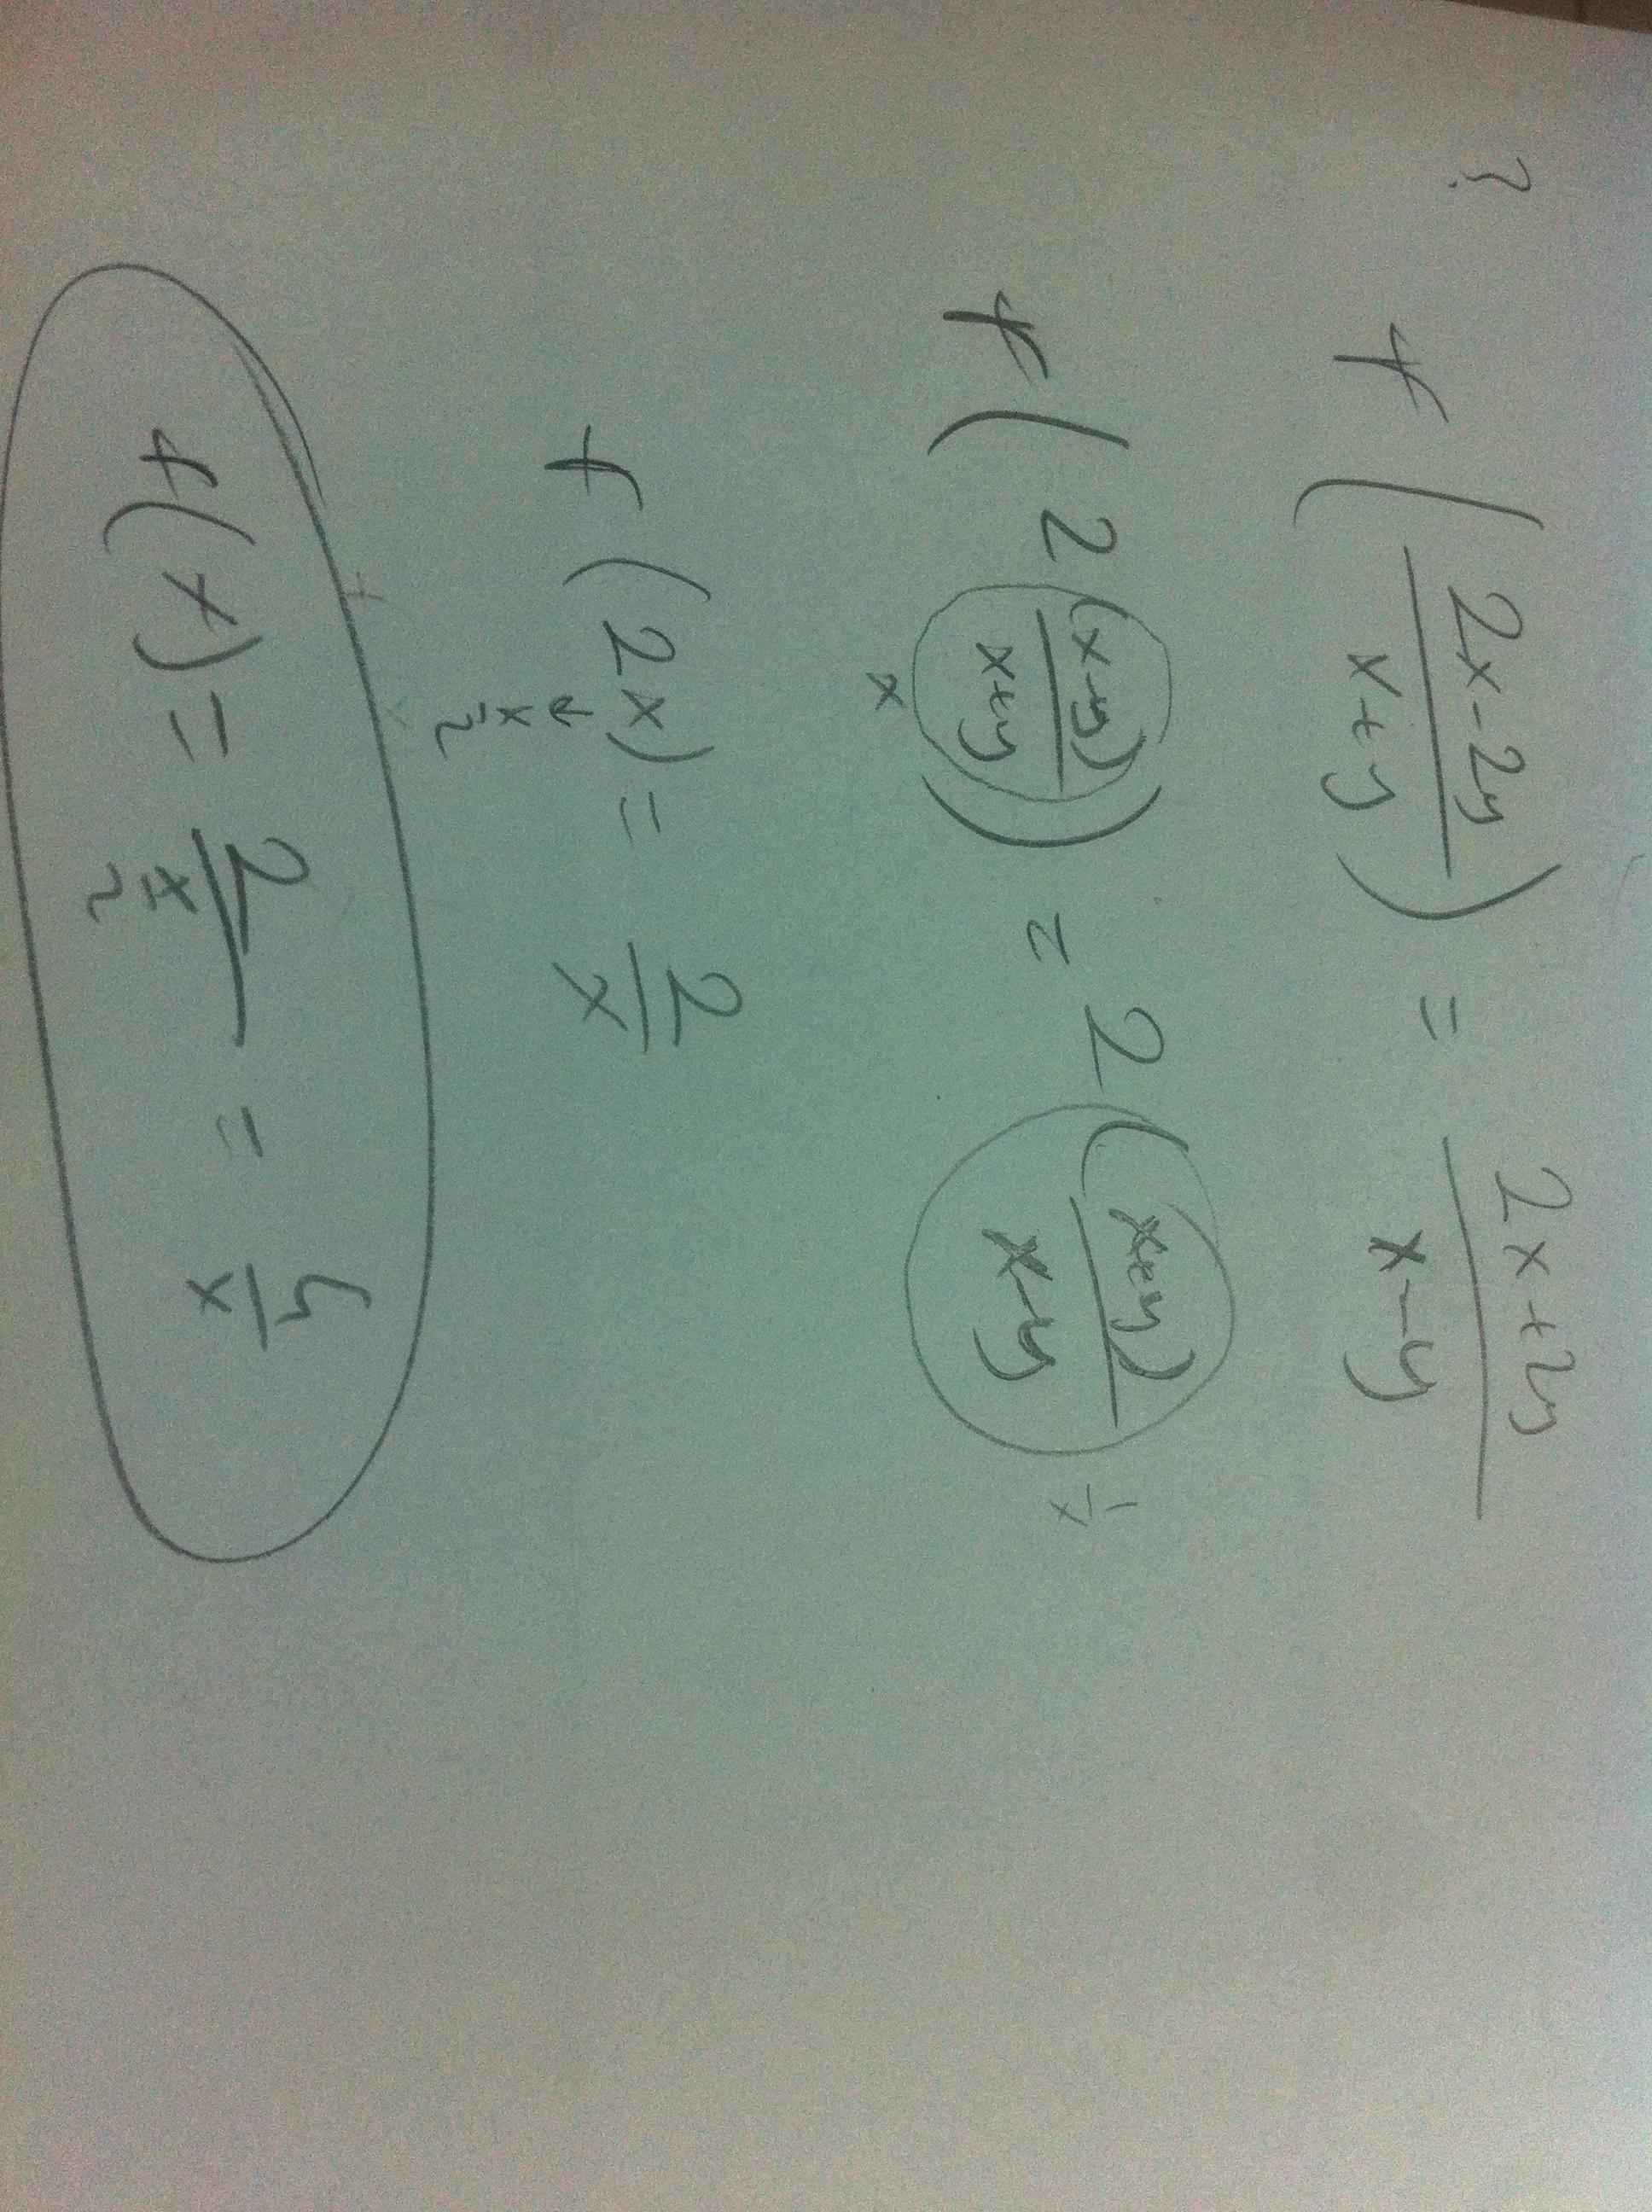 ?
f(2x-2y/x+y) = 2x+2y/x-y
f(2(x-y)/x+y) = 2(x+y)/x-y
x 1/x
f(2x) = 2/x
↓
x
2
f(x) = 2/x/2 = 4/x